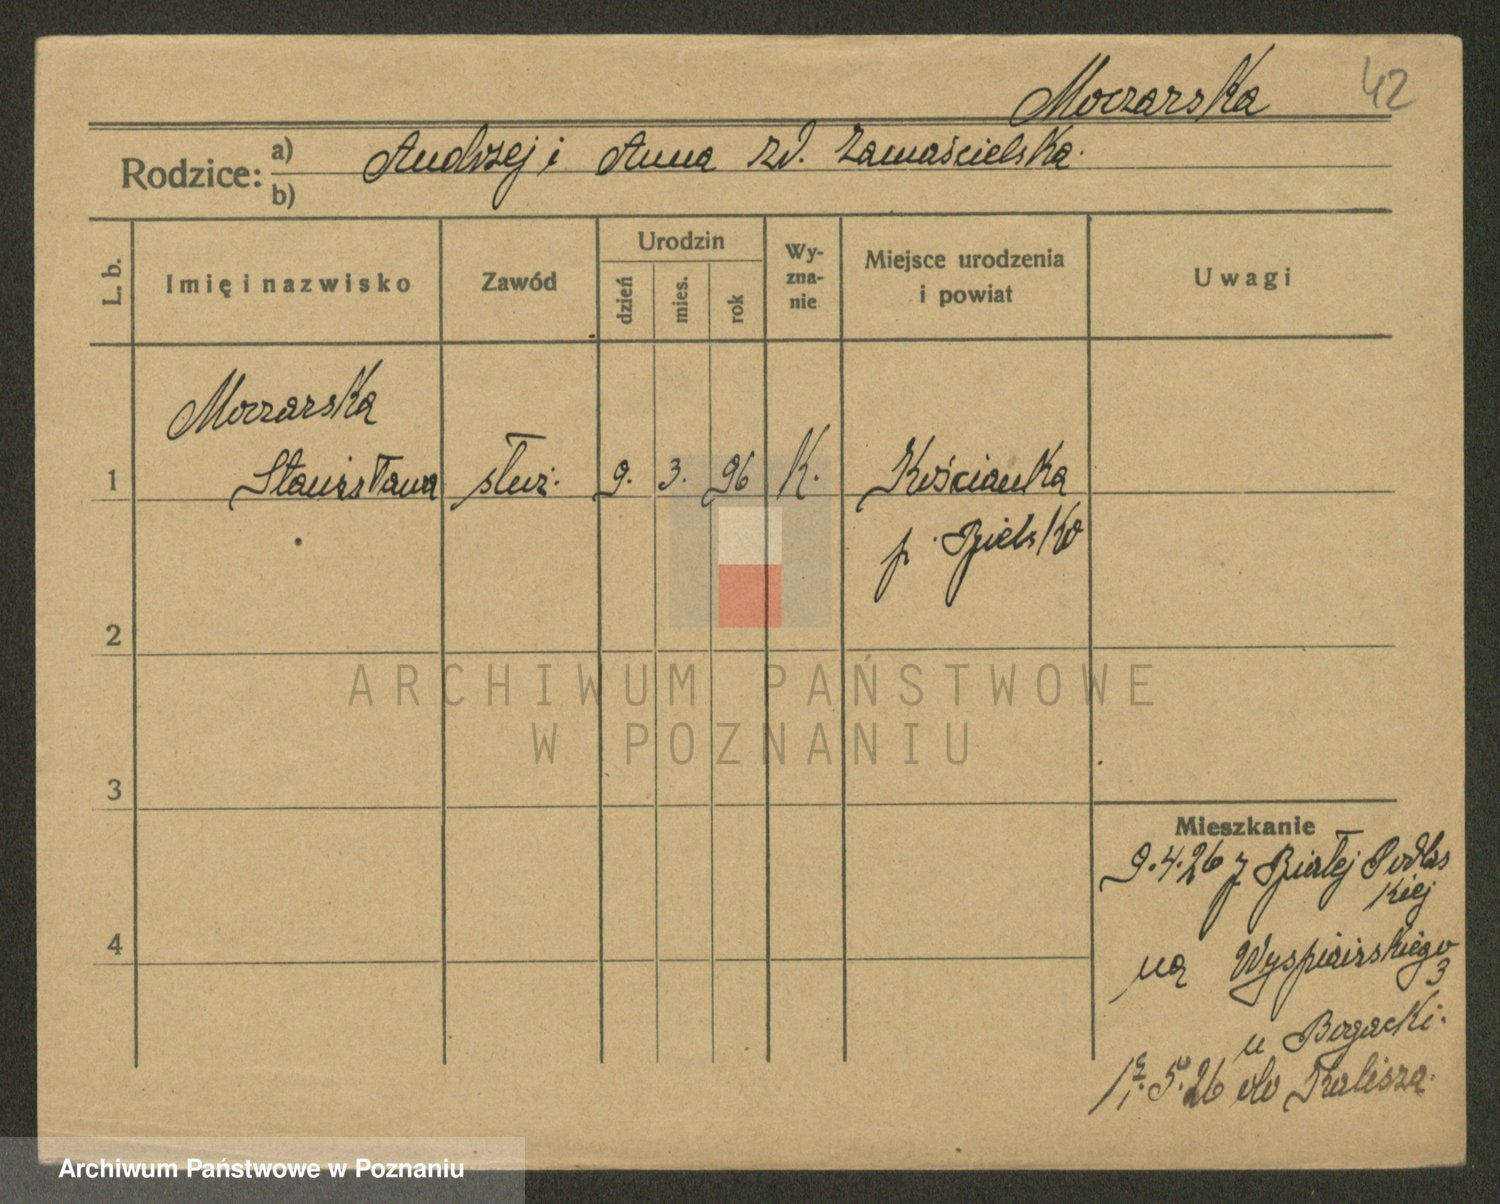 Moczarska 42
Rodzice: a) Andrzej i Anna zd. Zamaścielska.
b)
L. b. Imię i nazwisko Zawód Urodzin dzień mies. rok Wy-zna-nie Miejsce urodzenia i powiat Uwagi
Moczarska
1 Stanisława służ. 9. 3. 96 K. Kościanka
p. Bielsko
2
ARCHIWUM PAŃSTWOWE
W POZNANIU
3
Mieszkanie
9.4.26 z Białej Podlas
kiej
4
na Wyspiańskiego
3
u Bogacki.
5.26 do Kalisza.
Archiwum Państwowe w Poznaniu